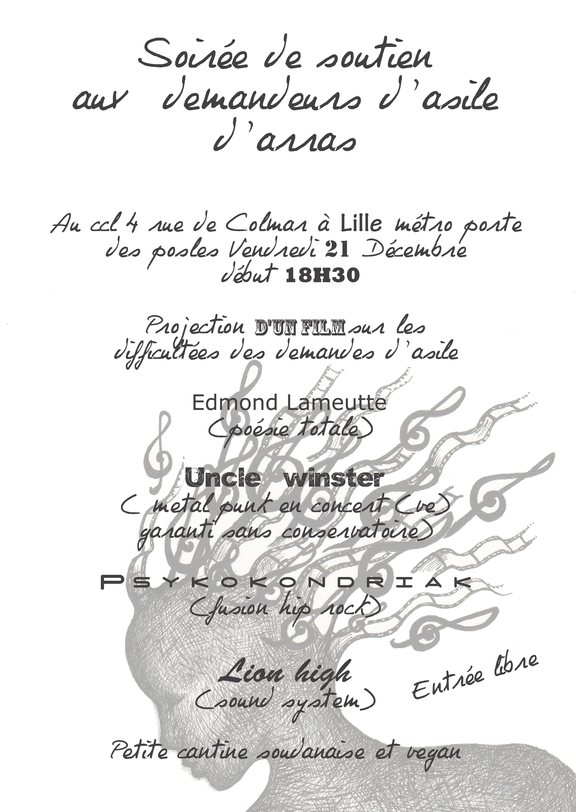 Soirée de soutien
aux demandeurs d'asile
d'arras
Au ccl 4 rue de Colmar à Lille métro porte
des postes Vendredi 21 Décembre
début 18H30
Projection D'UN FILM sur les
difficultées des demandes d'asile
Edmond Lameutte
(poésie totale)
Uncle winster
( metal punk en concert (ve)
garanti sans conservatoire)
PSYKOKONDRIAK
(fusion hip rock)
Lion high
(sound system)
Entrée libre
Petite cantine soudanaise et vegan